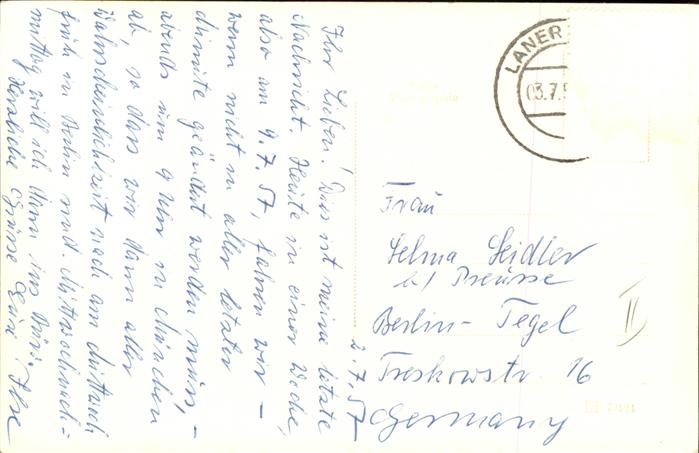 2.7.57
Ihr Lieben! Das ist meine letzte
Nachricht. Heute in einer Woche,
also am 9.7.57, fahren wir –
wenn nicht in aller letzter
Minute geändert werden muss, –
abends um 9 Uhr in München
ab, so dass wir dann aller
Wahrscheinlichkeit nach am Mittwoch
früh in Berlin sind. Mittwochnach-
mittag will ich dann ins Büro.
Herzliche Grüsse Eure Ilse
LANER
03.7.5
Frau
Selma Seidler
b/ Preusse
Berlin- Tegel
Treskowstr. 16
Germany
II